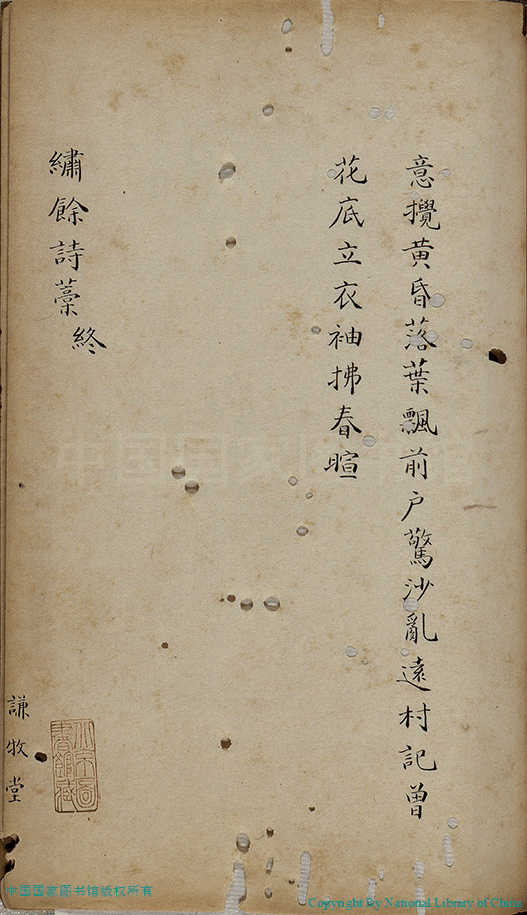 意攪黄昏落葉飄前户驚沙亂遠村記曽
花底立衣袖拂春暄
繡餘詩藁終
謙牧堂
北京圖書館藏
中国国家图书馆
中国国家图书馆版权所有
Copyright By National Library of China